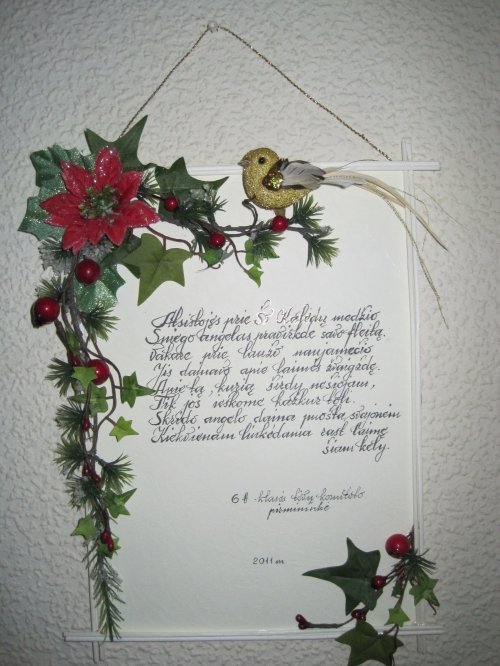 Atsistojęs prie Šv. Kalėdų medžio
Sniego angelas pravirkdė savo fleitą.
Vakare prie laužo naujamečio
Jis dainavo apie laimės žvaigždę.
Apie tą, kurią širdy nešiojam,
Tik jos ieškome kažkur toli.
Skrido angelo daina puošta svajonėm
Kiekvienam linkėdama rast laimę
šiam kely.
6 klasės tėvų komiteto
pirmininkė
2011 m